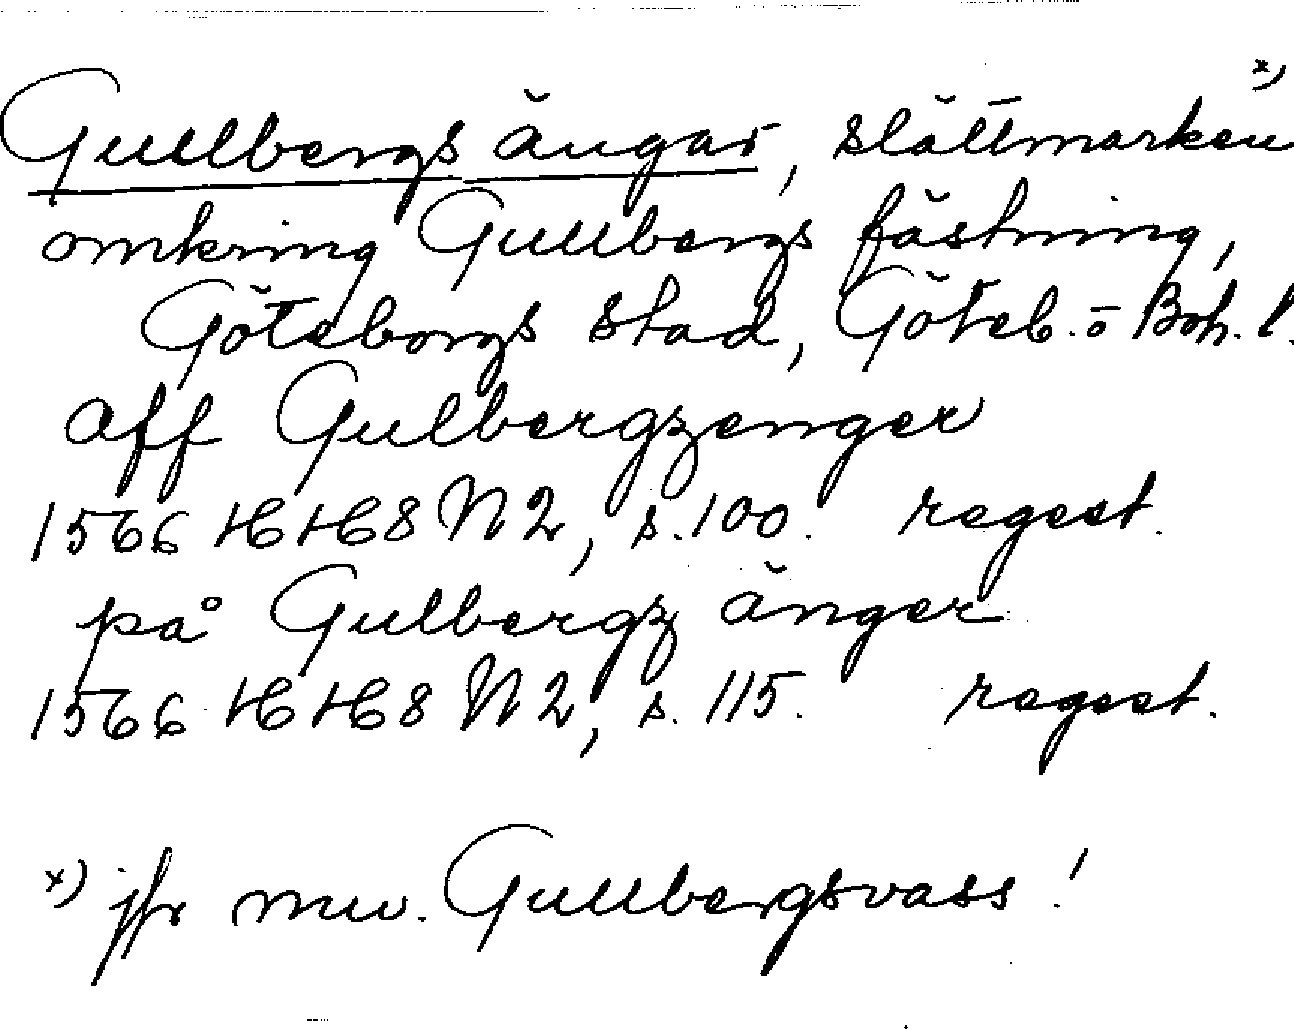 Gullbergs ängar, slättmarken x)
omkring Gullbergs fästning,
Göteborgs stad, Göteb. o Boh. l.
aff Gulbergzenger
1566 HH8 N2, s. 100. regest.
på Gulbergz änger
1566 HH8 N2, s. 115. regest.
x) jfr nuv. Gullbergsvass!